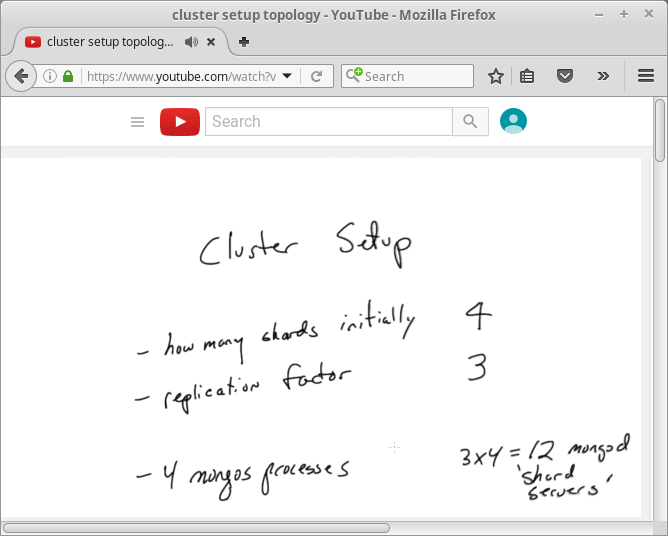 cluster setup topology - YouTube - Mozilla Firefox
cluster setup topolog...
https://www.youtube.com/watch?v
Search
Search
Cluster Setup
- how many shards initially 4
- replication factor 3
- 4 mongos processes
3x4 = 12 mongod
'shard
servers'